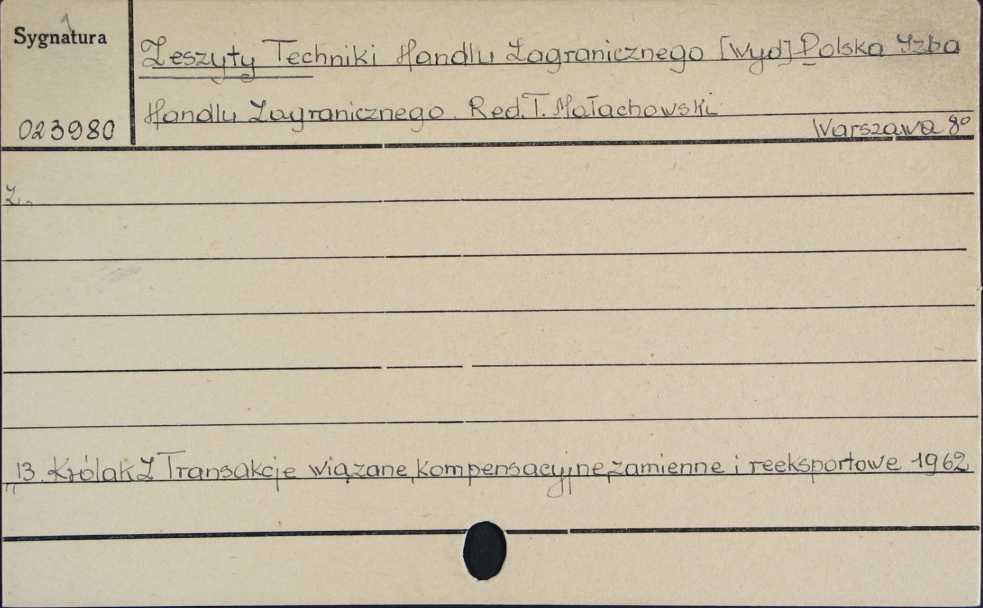 Sygnatura
Zeszyty Techniki Handlu Zagranicznego [Wyd] Polska Izba
Handlu Zagranicznego. Red. T. Małachowski
023980
Warszawa 8°
Z.
13. Królak Z Transakcje wiązane, kompensacyjne, zamienne i reeksportowe 1962